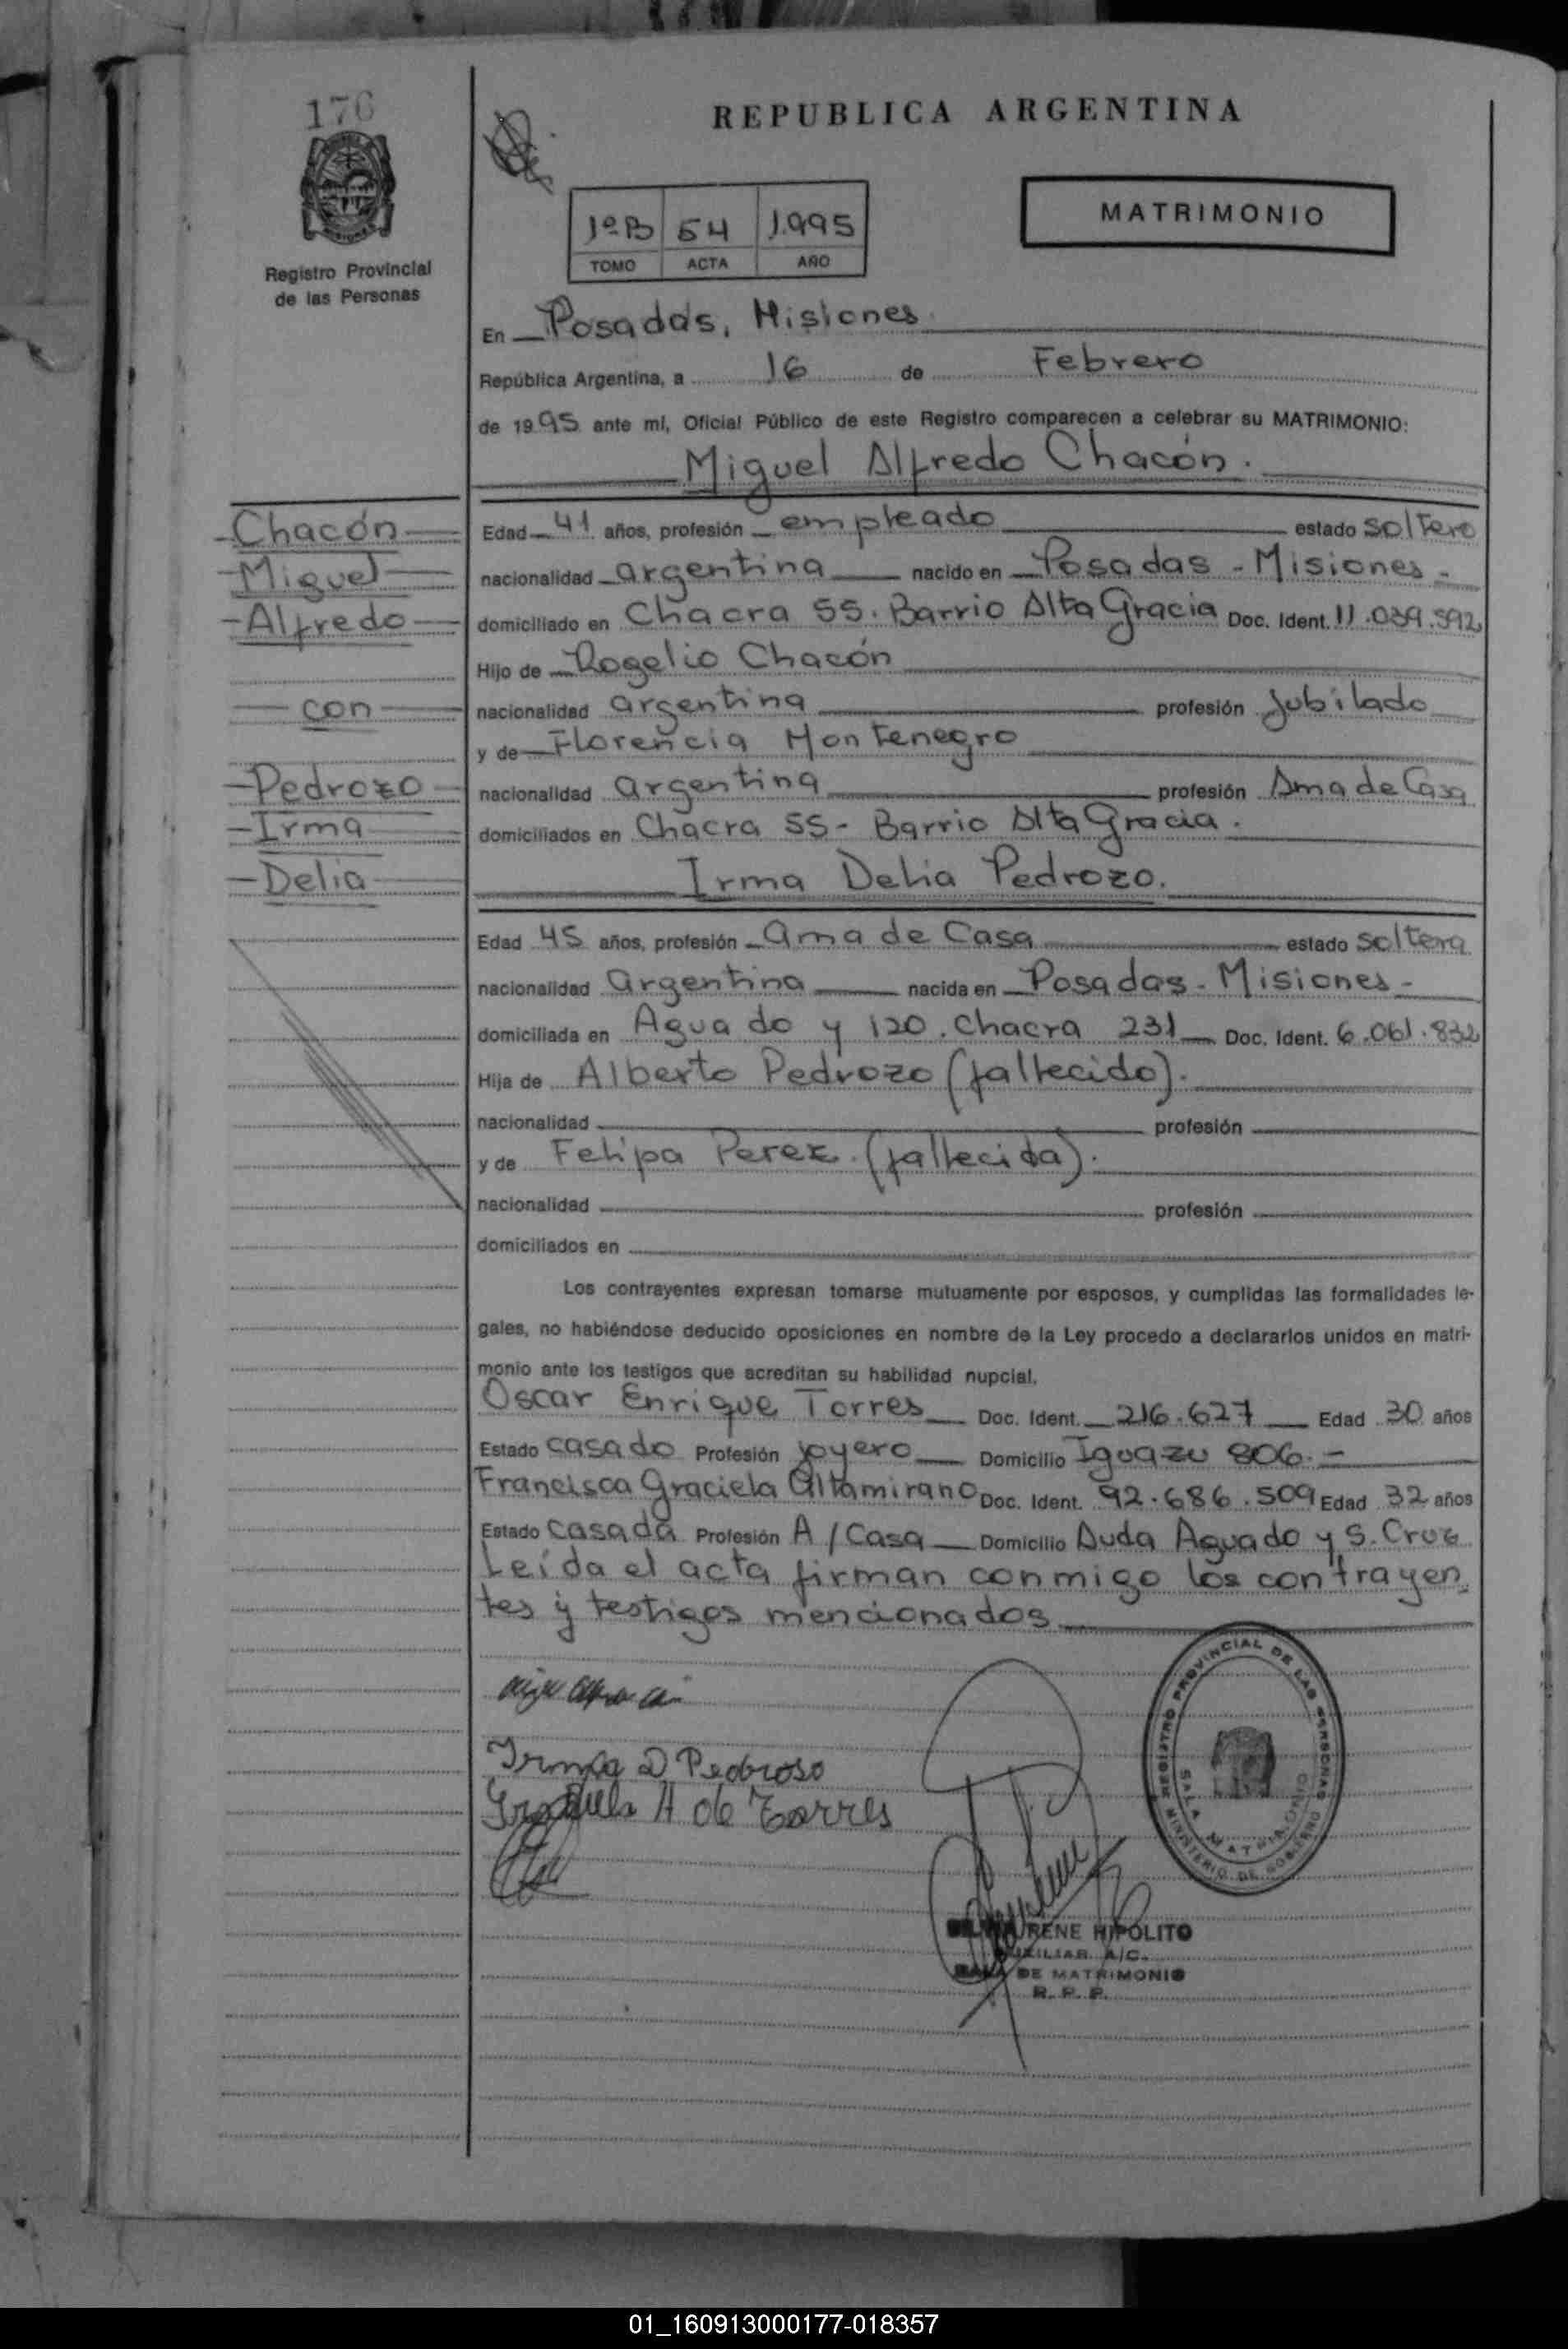 176
REPUBLICA ARGENTINA
MATRIMONIO
1º B 54 1.995
TOMO ACTA AÑO
Registro Provincial
de las Personas
En Posadas, Misiones
República Argentina, a 16 de Febrero
de 1995 ante mí, Oficial Público de este Registro comparecen a celebrar su MATRIMONIO:
Miguel Alfredo Chacón.
Chacón
Miguel
Alfredo
con
Pedrozo
Irma
Delia
Edad 41 años, profesión empleado estado soltero
nacionalidad argentina nacido en Posadas - Misiones -
domiciliado en Chacra 55. Barrio Alta Gracia Doc. Ident. 11.039.592
Hijo de Rogelio Chacón
nacionalidad argentina profesión Jubilado
y de Florencia Montenegro
nacionalidad argentina profesión Ama de Casa
domiciliados en Chacra 55 - Barrio Alta Gracia.
Irma Delia Pedrozo.
Edad 45 años, profesión ama de Casa estado soltera
nacionalidad argentina nacida en Posadas - Misiones -
domiciliada en Aguado y 120. Chacra 231 Doc. Ident. 6.061.832
Hija de Alberto Pedrozo (fallecido).
nacionalidad profesión
y de Felipa Perez. (fallecida).
nacionalidad profesión
domiciliados en
Los contrayentes expresan tomarse mutuamente por esposos, y cumplidas las formalidades le-
gales, no habiéndose deducido oposiciones en nombre de la Ley procedo a declararlos unidos en matri-
monio ante los testigos que acreditan su habilidad nupcial.
Oscar Enrique Torres Doc. Ident. 216.627 Edad 30 años
Estado casado Profesión joyero Domicilio Iguazu 806. -
Francisca Graciela Altamirano Doc. Ident. 92.686.509 Edad 32 años
Estado Casada Profesión A/Casa Domicilio Avda Aguado y S. Cruz
Leída el acta firman conmigo los contrayen
tes y testigos mencionados
Irma D Pedroso
H de Torres
REGISTRO PROVINCIAL DE LAS PERSONAS
SALA MATRIMONIO
MINISTERIO DE GOBIERNO
IRENE HIPOLITO
AUXILIAR A/C.
SALA DE MATRIMONIO
R. P. P.
01_160913000177-018357